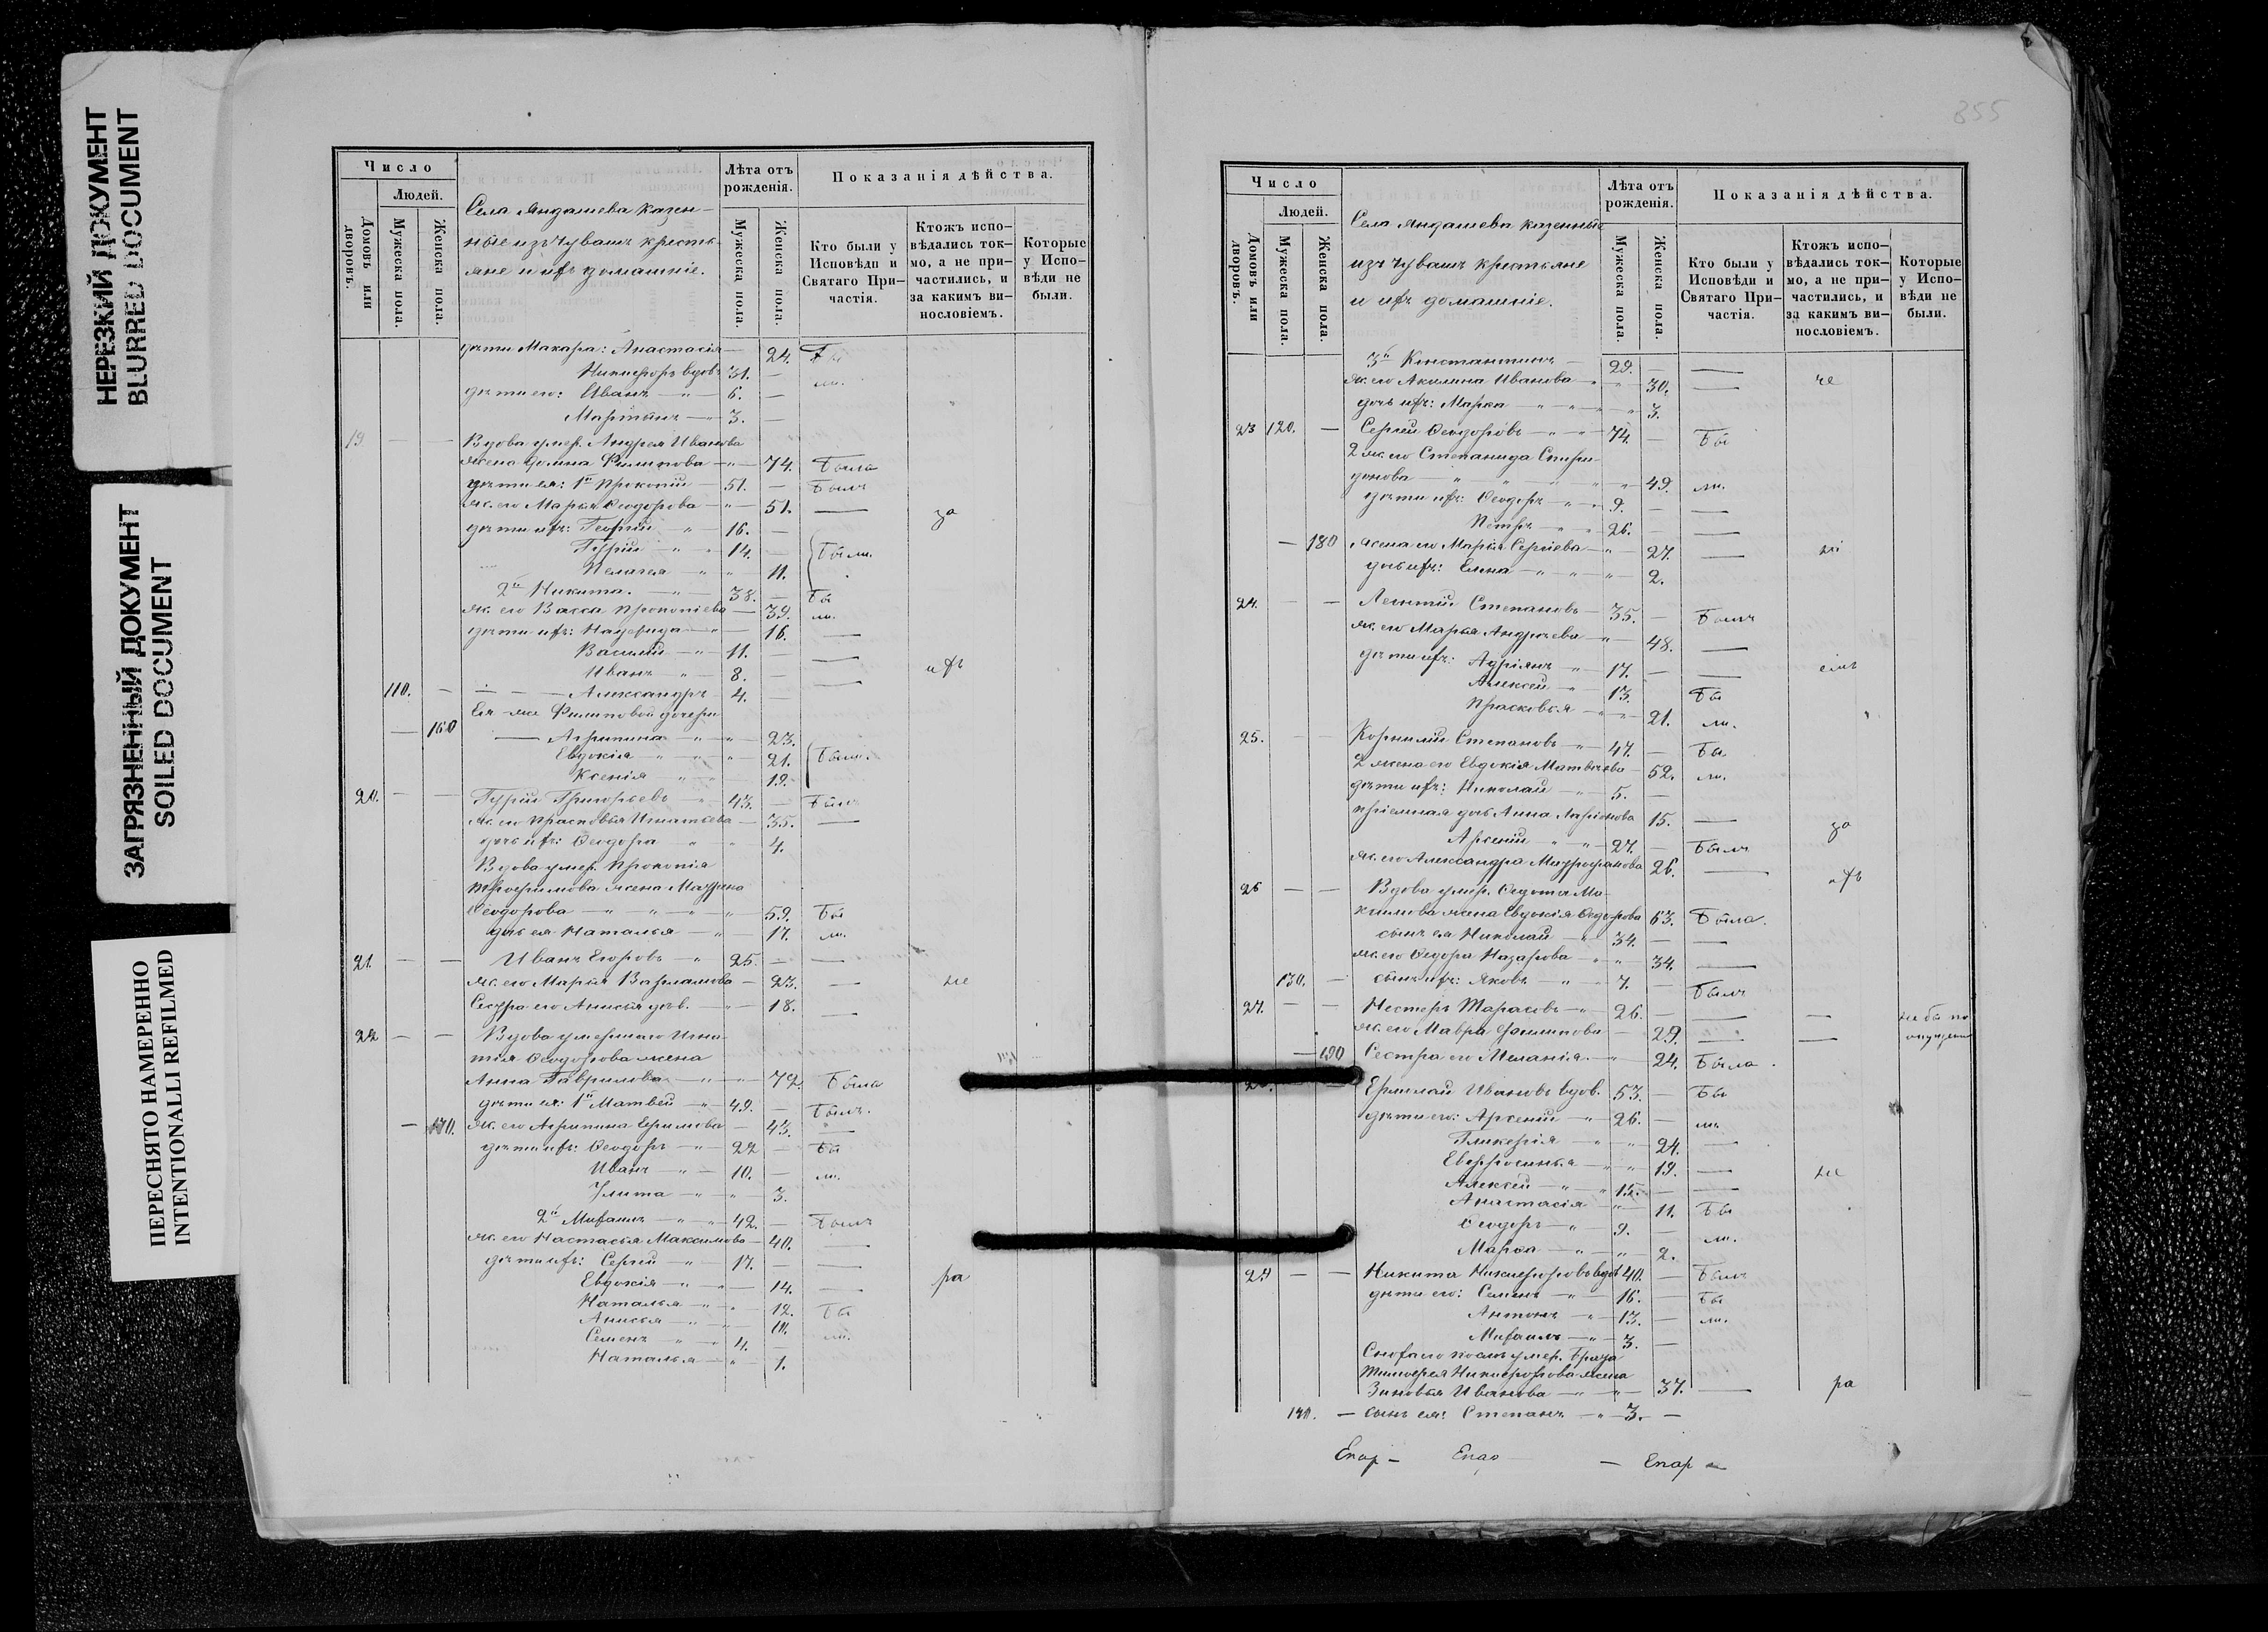 НЕРЕЗКИЙ ДОКУМЕНТ
BLURRED DOCUMENT
ЗАГРЯЗНЕННЫЙ ДОКУМЕНТ
SOILED DOCUMENT
ПЕРЕСНЯТО НАМЕРЕННО
INTENTIONALLI REFILMED
Число
Людей.
Домовъ или дворовъ.
Мужеска пола.
Женска пола.
Села Яндашева казен-
ные изъ Чувашъ кресть-
яне и ихъ домашніе.
Лѣта отъ рожденія.
Мужеска пола.
Женска пола.
Показанія дѣйства.
Кто были у Исповѣди и Святаго При-частія.
Ктожъ испо-вѣдались ток-мо, а не при-частились, и за какимъ ви-нословіемъ.
Которые у Испо-вѣди не были.
дѣти Макара: Анастасія — 24. Бы
Никифоръ вдовъ 31. — ли.
дѣти его: Иванъ — " — 6. —
Мартынъ — 3. —
19 — — Вдова умер. Андрея Иванова
жена Домна Филипова — " — 74. Была
дѣти ея: 1й Прокопій — 51. — Былъ
ж. его Марья Ѳеодорова — " — 51. — за
дѣти ихъ: Георгій — " 16. —
Гурій — " 14. — Были.
Пелагея — " " 11.
2й Никита. — " — 38. — Бы
ж. его Васса Прокопіева — 39. ли.
дѣти ихъ: Надежда — " — 16. —
Василій — " — 11. — —
Иванъ — " — 8. — — ихъ
110. — Александръ 4. —
Ея же Филиповой дочери
— 160 — Агрипина — " — " — 23.
Евдокія — " — " 21. Были.
Ксенія — " — 19.
20. — — Гурій Григорьевъ — 43. — Былъ
ж. его Прасковья Игнатьева — 35. —
дочь ихъ: Ѳеодора " " 4.
Вдова умер. Прокопія
Трофимова жена Матрена
Ѳеодорова — " — " — " 59. Бы
дочь ея Наталья — " — 17. ли.
21. — — Иванъ Егоровъ — " 25. — —
ж. его Марья Варламова — 23. — не
Сестра его Анисья дѣв. — " — 18. —
22 — — Вдова умершаго Игна-
тія Ѳеодорова жена
Анна Гаврилова — " — " — 72. Была
дѣти ея: 1й Матвей — " — 49. — Былъ.
— 170. ж. его Агрипина Ефимова — 43. —
дѣти ихъ: Ѳеодоръ — " — 22 — Бы
Иванъ — " — 10. — ли.
Улита — " — " 3.
2й Михаилъ — " — " 42. — Былъ
ж. его Настасья Максимова — 40. —
дѣти ихъ: Сергій — " — 17. — —
Евдокія — " — " 14. — ра
Наталья — " — " 12. Бы
Анисья — " — " 10. ли.
Семенъ — " — " 4. —
Наталья — " — 1.
355
Число
Людей.
Домовъ или дворовъ.
Мужеска пола.
Женска пола.
Села Яндашева казенные
изъ Чувашъ крестьяне
и ихъ домашніе.
Лѣта отъ рожденія.
Мужеска пола.
Женска пола.
Показанія дѣйства.
Кто были у Исповѣди и Святаго При-частія.
Ктожъ испо-вѣдались ток-мо, а не при-частились, и за какимъ ви-нословіемъ.
Которые у Испо-вѣди не были.
3й Константинъ — 29. —
ж. его Акилина Иванова — " — 30. —
дочь ихъ: Марѳа — " — " — " 3.
23 120. — Сергей Ѳеодоровъ — " — 74. — Бы
2 ж. его Степанида Спири-
донова — " " " " 49. ли.
дѣти ихъ: Ѳеодоръ — " — 9. — —
Петръ — " 26. — —
— 180 Жена его Марья Сергіева — " — 27. —
дочь ихъ: Елена — " — " — " 2.
24. — — Леонтій Степановъ — 35. — Былъ
ж. его Марья Андреева — " — 48. —
дѣти ихъ: Адріянъ — " 17. — —
Алексей — " 13. Бы
Прасковья — " — " 21. ли.
25. — — Корнилій Степановъ — " 47. — Бы
2 жена его Евдокія Матвѣева — 52. ли.
дѣти ихъ: Николай — " — 5. —
пріемная дочь Анна Ларіонова 15. — за
Арсеній " " 27. — Былъ
ж. его Александра Митрофанова 26. — ихъ
26 — — Вдова умер. Ѳедота Ма-
ксимова жена Евдокія Ѳедорова 63. Была.
сынъ ея Николай — " 34. — —
ж. его Ѳедора Назарова — " " 34. —
130. — сынъ ихъ: Яковъ — " 7. — Былъ
27. — — Нестеръ Тарасовъ — " 26. — — —
ж. его Мавра Филипова — 29. — —
— 190 Сестра его Меланія. — " 24. Была.
Ермолай Ивановъ вдов. 53. — Бы
дѣти его: Арсеній — " 26. — ли.
Гликерія — " " 24. —
Евфросинья — " — " 19. — не
Алексей — " — " 15. — —
Анастасія — " — 11. Бы
Ѳеодоръ — " 9. — ли.
Марѳа — " — " 2.
29 — — Никита Никифоровъ вдов 40. — Былъ
дѣти его: Семенъ — " — 16. — Бы
Антонъ — " — 13. — ли.
Михаилъ — " — 3. —
Сноха его послѣ умер. брата
Тимофея Никифорова жена
Зиновья Иванова — " — " — 37. — ра
140. — сынъ ея: Степанъ — " — 3. —
Епар — — Епар —